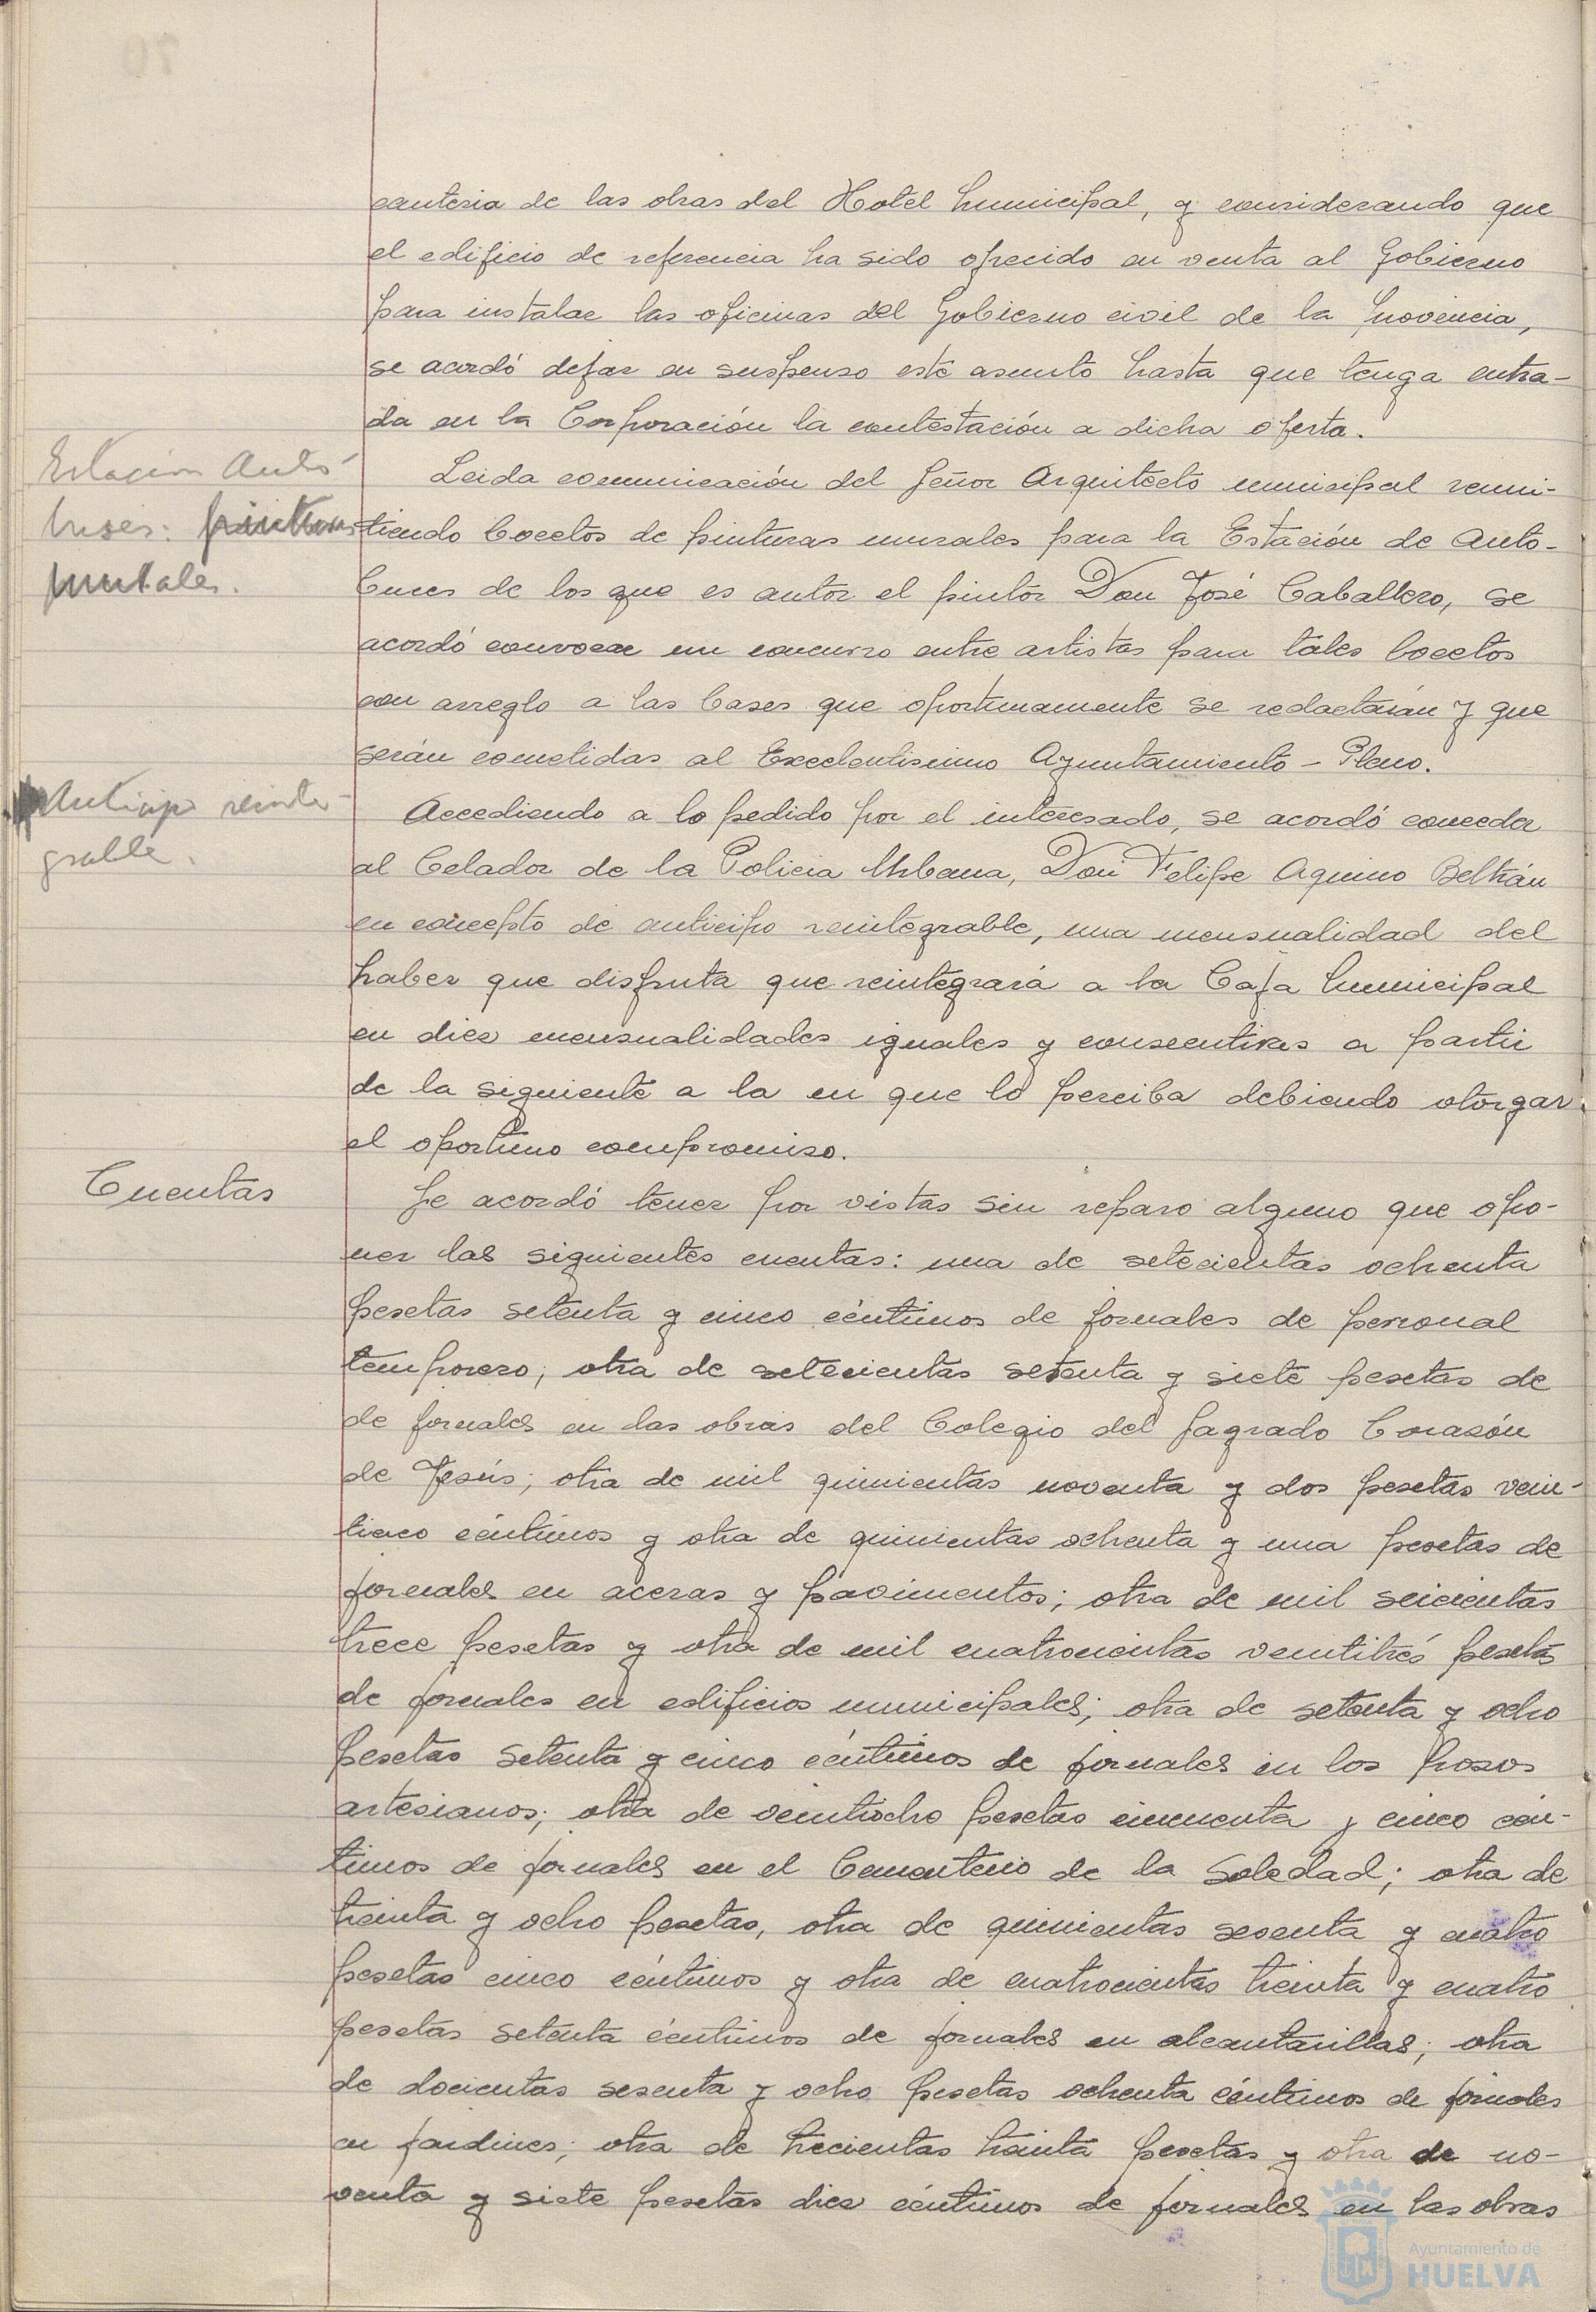 cantería de las obras del Hotel Municipal, y considerando que
el edificio de referencia ha sido ofrecido en venta al Gobierno
para instalar las oficinas del Gobierno civil de la Provincia,
se acordó dejar en suspenso este asunto hasta que tenga entra-
da en la Corporación la contestación a dicha oferta.
Estación Auto-
buses: pinturas
murales.
Leida comunicación del Señor Arquitecto municipal remi-
tiendo bocetos de pinturas murales para la Estación de Auto-
buses de los que es autor el pintor Don José Caballero, se
acordó convocar un concurso entre artistas para tales bocetos
con arreglo a las bases que oportunamente se redactarán y que
serán sometidas al Excelentísimo Ayuntamiento - Pleno.
Anticipo reinte-
grable.
Accediendo a lo pedido por el interesado, se acordó conceder
al Celador de la Policia Urbana, Don Felipe Aquino Beltrán
en concepto de anticipo reintegrable, una mensualidad del
haber que disfruta que reintegrará a la Caja Municipal
en diez mensualidades iguales y consecutivas a partir
de la siguiente a la en que lo perciba debiendo otorgar
el oportuno compromiso.
Cuentas
Se acordó tener por vistas sin reparo alguno que opo-
ner las siguientes cuentas: una de setecientas ochenta
pesetas setenta y cinco céntimos de jornales de personal
temporero; otra de setecientas setenta y siete pesetas de
de jornales en las obras del Colegio del Sagrado Corazón
de Jesús; otra de mil quinientas noventa y dos pesetas vein-
ticinco céntimos y otra de quinientas ochenta y una pesetas de
jornales en aceras y pavimentos; otra de mil seiscientas
trece pesetas y otra de mil cuatrocientas veintitrés pesetas
de jornales en edificios municipales; otra de setenta y ocho
pesetas setenta y cinco céntimos de jornales en los pozos
artesianos; otra de veintiocho pesetas cincuenta y cinco cén-
timos de jornales en el Cementerio de la Soledad; otra de
treinta y ocho pesetas, otra de quinientas sesenta y cuatro
pesetas cinco céntimos y otra de cuatrocientas treinta y cuatro
pesetas setenta céntimos de jornales en alcantarillas; otra
de docientas sesenta y ocho pesetas ochenta céntimos de jornales
en jardines; otra de trecientas treinta pesetas y otra de no-
venta y siete pesetas diez céntimos de jornales en las obras
Ayuntamiento de
HUELVA